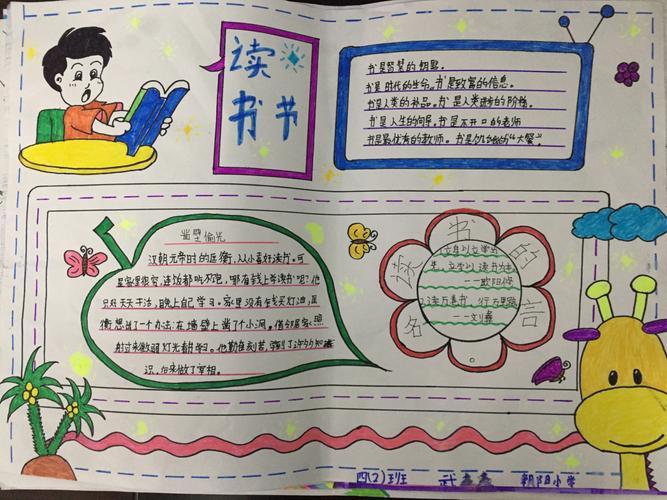 读书节
书是智慧的钥匙
书是时代的生命。书是致富的信息。
书是人类的补品。书是人类进步的阶梯。
书是人生的向导。书是不开口的老师
书是最优有的教师。书是
凿壁偷光
汉朝元帝时的匡衡,从小喜好读书。可
是家里很穷,连饭都吃不饱,哪有钱上学读书呢?他
只好天天干活,晚上自己学习。家里没有钱买灯油,匡
衡想出了一个办法:在墙壁上凿了个小洞,借邻居家照
射过来微弱灯光
识,后来做了宰相。
读书的名言
立身以立学为
先,立学以读书为本
——欧阳修
读万卷书,行万里路
——刘彝
四(2)班
武
朝阳小学